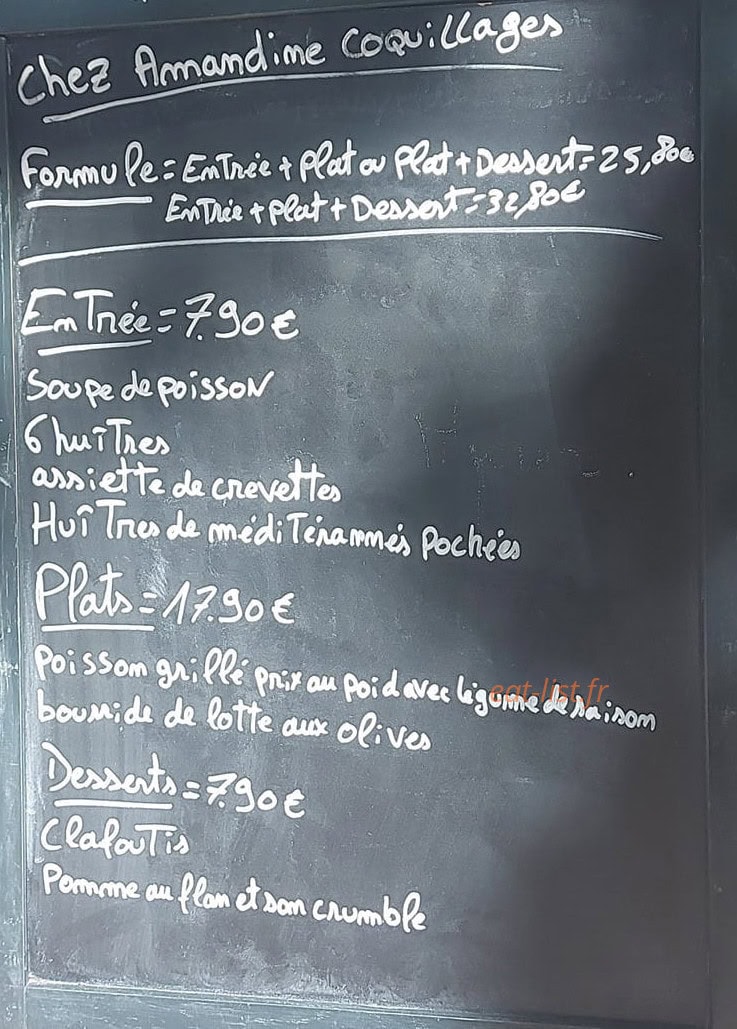 Chez Amandine Coquillages
Formule = Entrée + Plat ou Plat + Dessert = 25,80€
Entrée + Plat + Dessert = 32,80€
Entrée = 7.90€
Soupe de poisson
6 huîtres
assiette de crevettes
Huîtres de méditérannnés pochées
Plats = 17.90€
Poisson grillé prix au poid avec légume de saison
bourride de lotte aux olives
eat-list.fr
Desserts = 7.90€
Clafoutis
Pomme au flan et son crumble